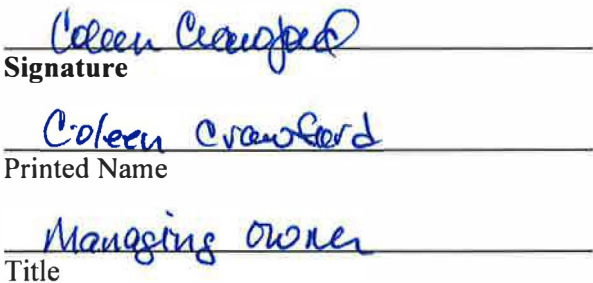 Coleen Crawford
Signature
Coleen Crawford
Printed Name
Managing Owner
Title